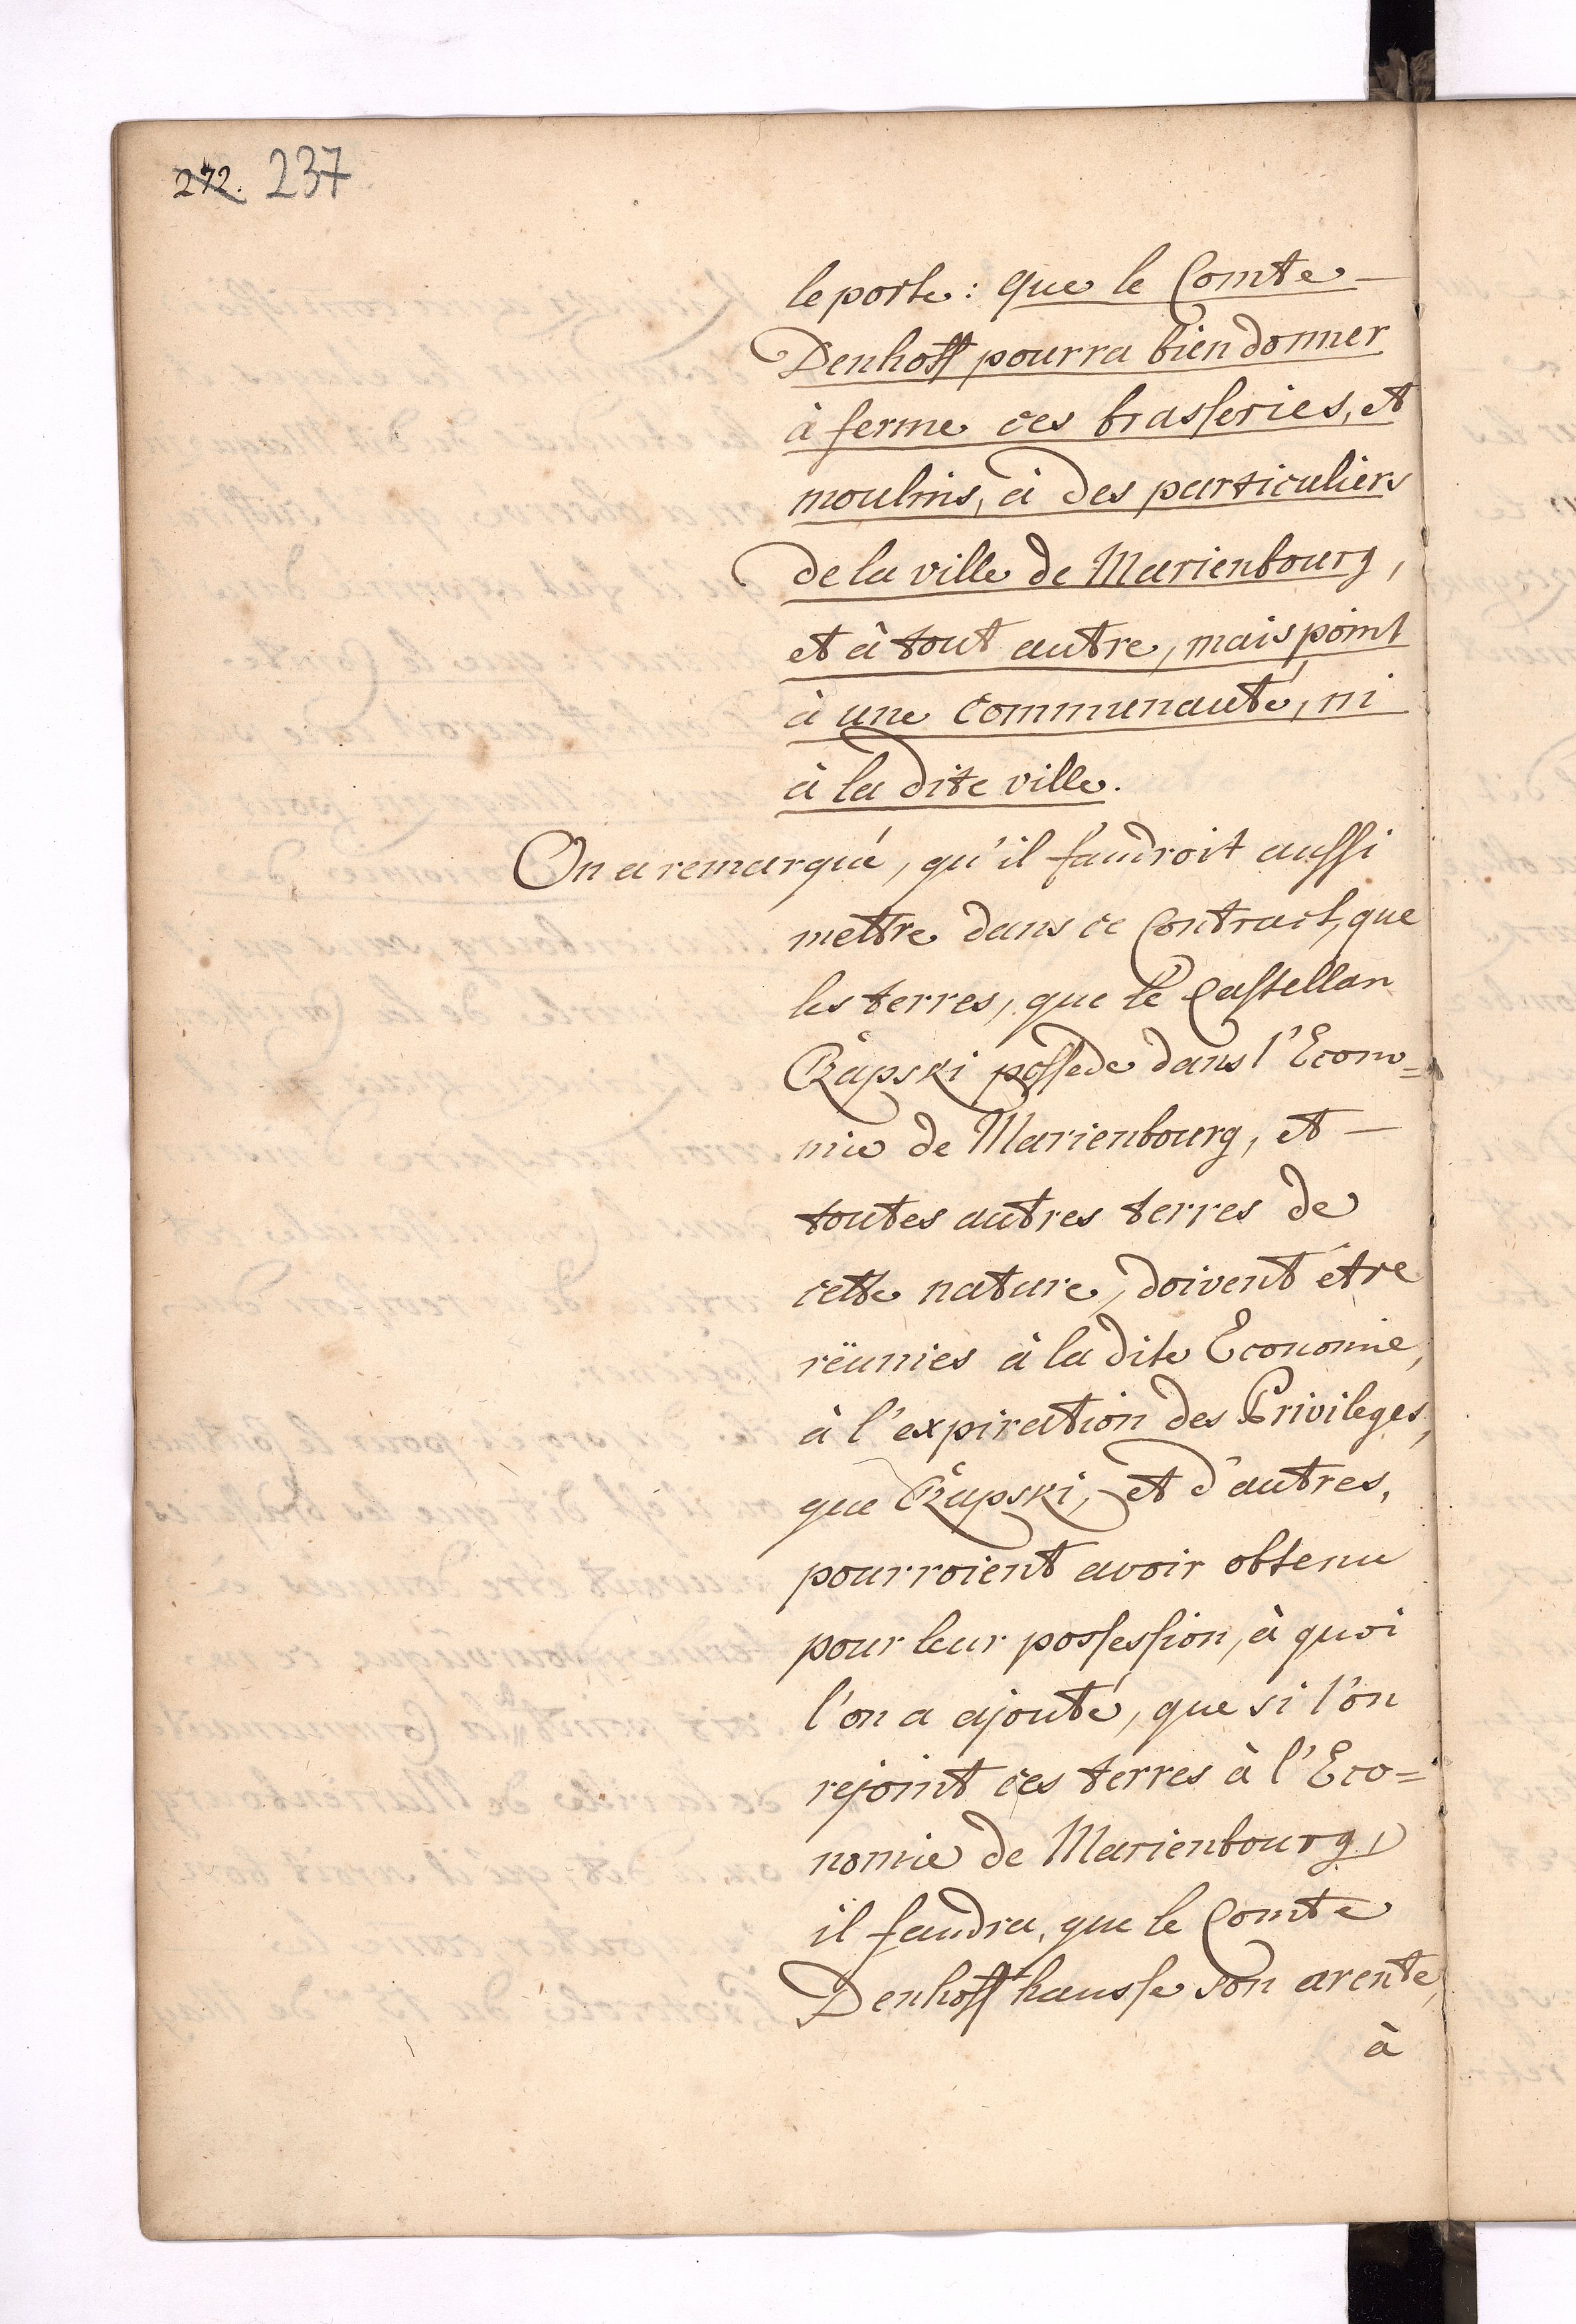 272. 237
le porte: que le Comte
Denhoff pourra bien donner
à ferme ces brasseries, et
moulins, à des particuliers
de la ville de Marienbourg,
et à tout autre, mais point
à une communauté, ni
à la dite ville.
On a remarqué, qu'il faudroit aussi
mettre dans ce Contract, que
les terres, que le Castellan
Czapski possede dans l'Econo=
mie de Marienbourg, et
toutes autres terres de
cette nature, doivent étre
rëunies à la dite Economie,
à l'expiration des Privileges,
que Czapski, et d'autres,
pourroient avoir obtenu
pour leur possession, à quoi
l'on a ajouté, que si l'on
rejoint ces terres à l'Eco=
nomie de Marienbourg,
il faudra, que le Comte
Denhoff hausse son arente,
à